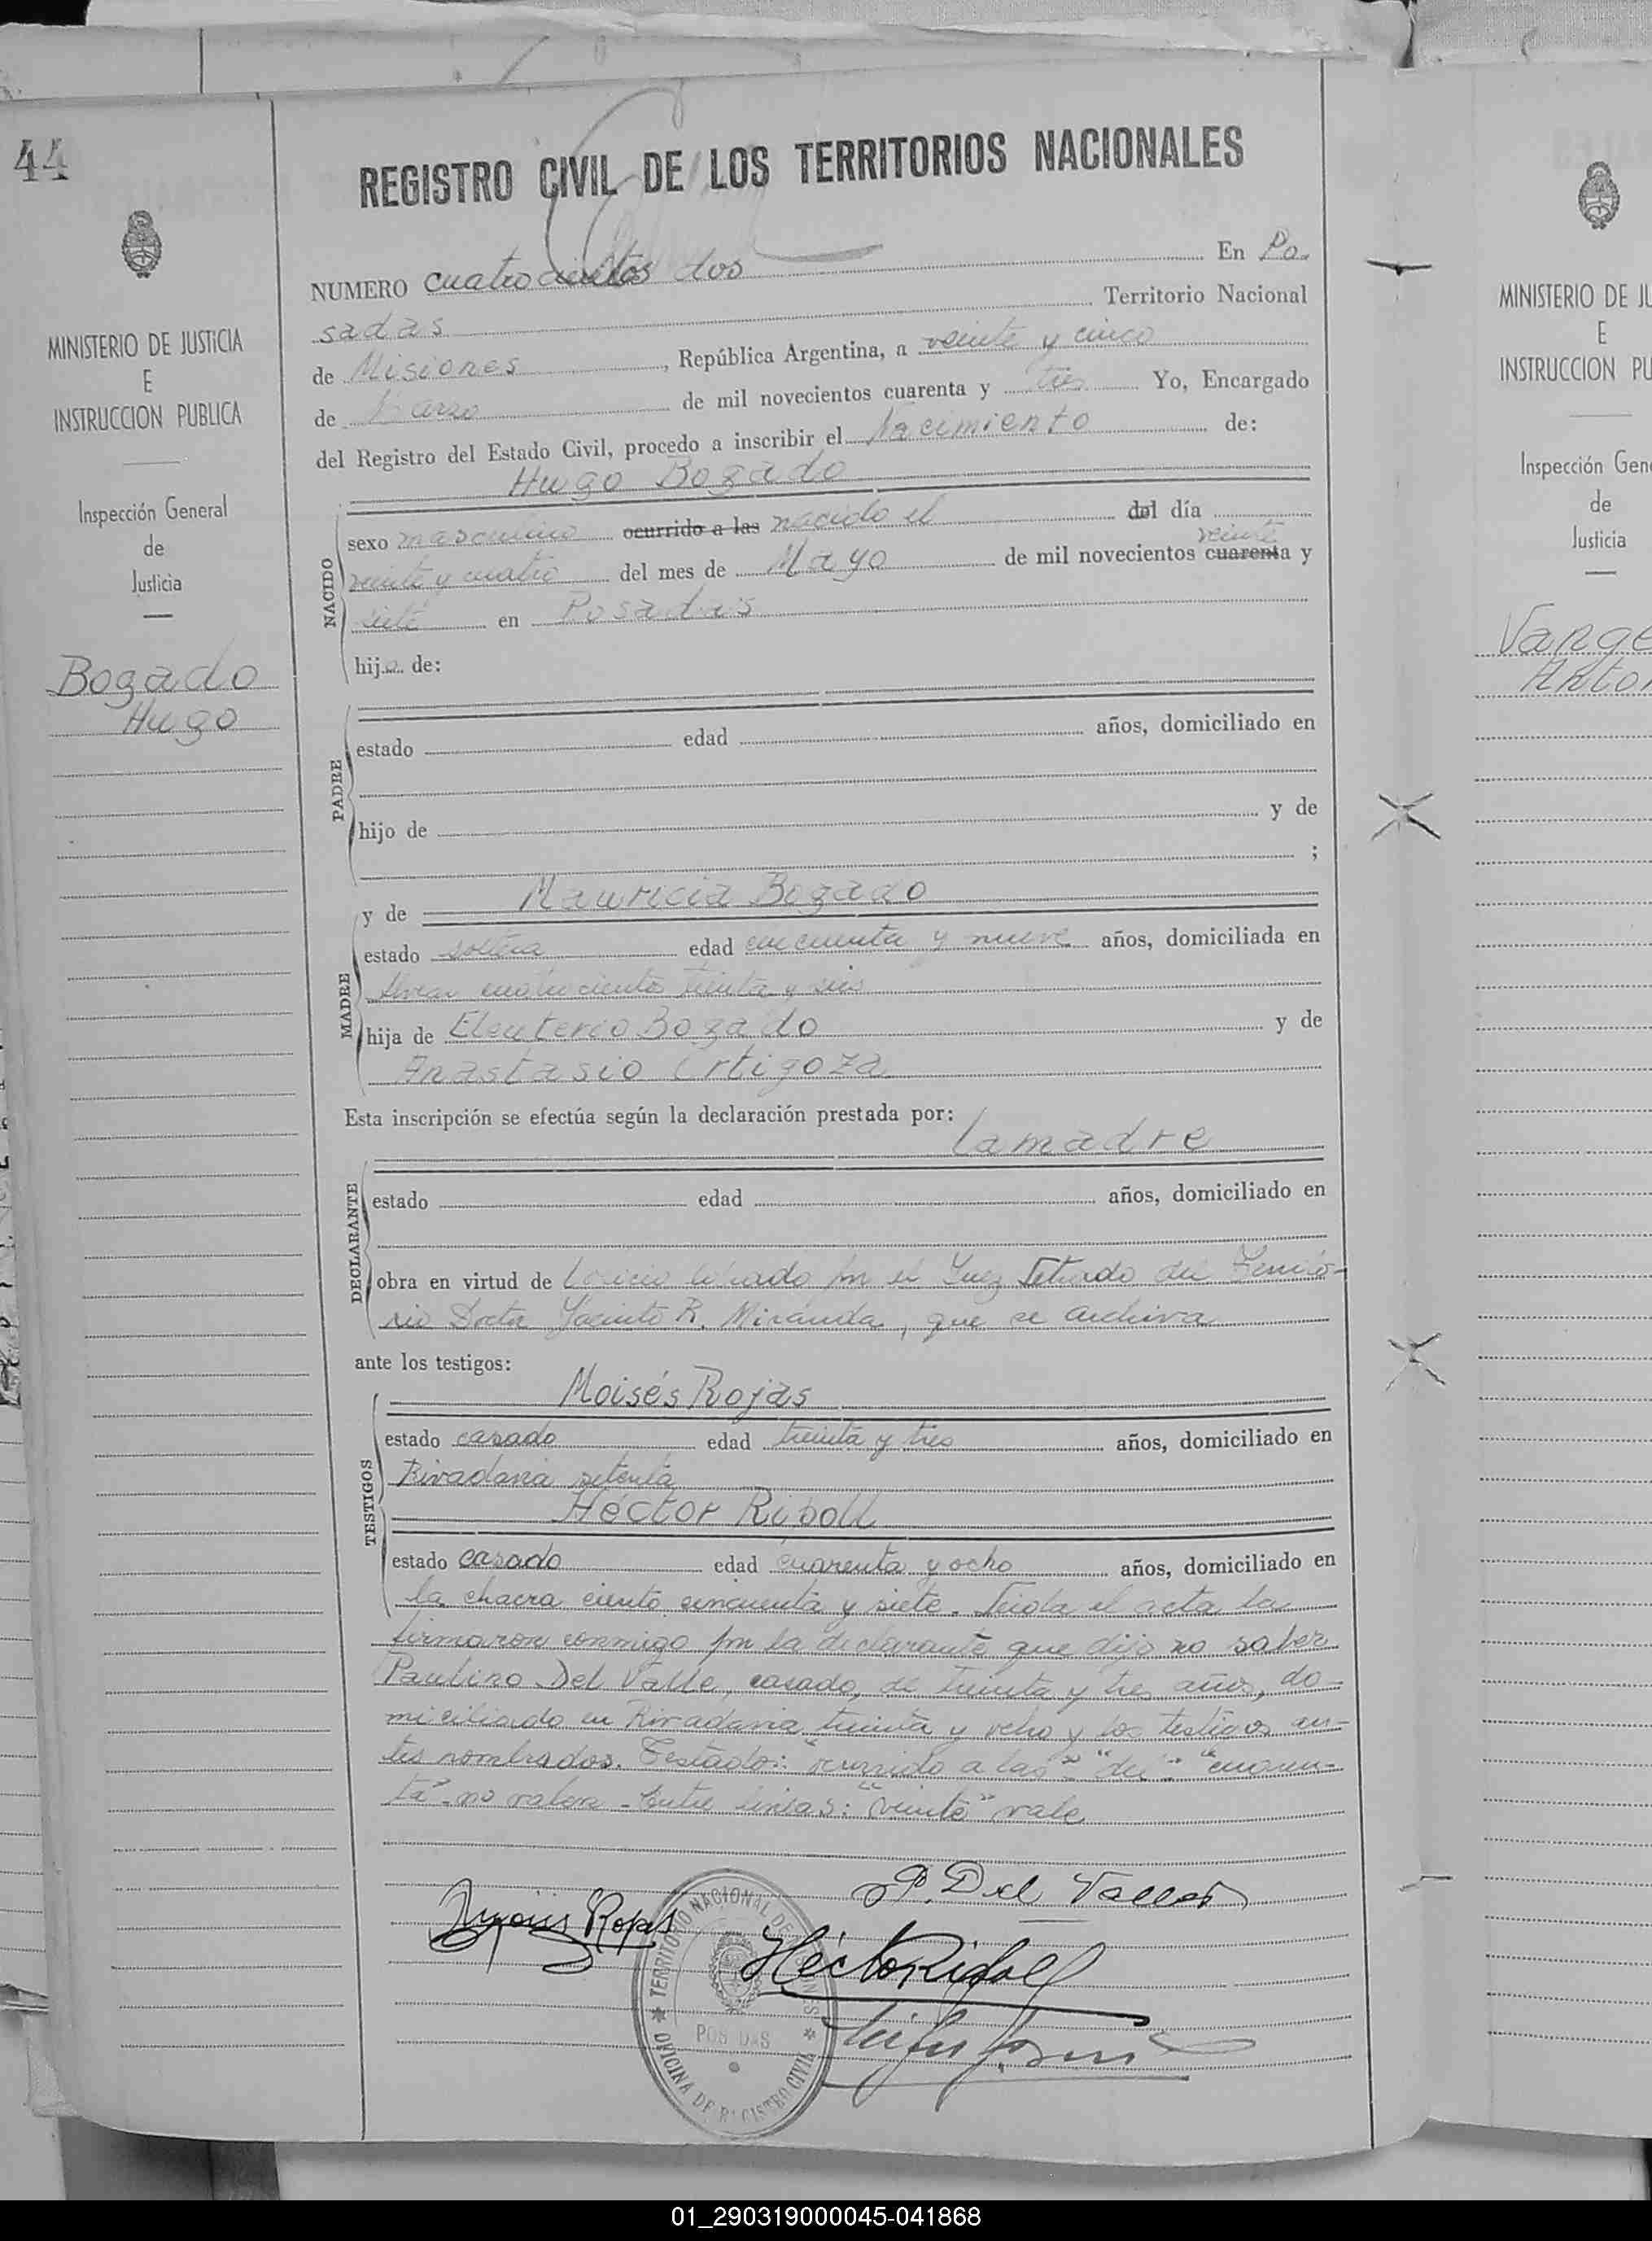 44
REGISTRO CIVIL DE LOS TERRITORIOS NACIONALES
MINISTERIO DE JUSTICIA
E
INSTRUCCION PUBLICA
Inspección General
de
Justicia
Bogado
Hugo
NUMERO cuatrocientos dos En Po-
sadas Territorio Nacional
de Misiones, República Argentina, a veinte y cinco
de Marzo de mil novecientos cuarenta y tres Yo, Encargado
del Registro del Estado Civil, procedo a inscribir el Nacimiento de:
Hugo Bogado
NACIDO
sexo masculino ocurrido a las nacido el del día
veinte
veinte y cuatro del mes de Mayo de mil novecientos cuarenta y
siete en Posadas
hijo de:
PADRE
estado edad años, domiciliado en
hijo de y de
;
MADRE
y de Mauricia Bogado
estado soltera edad cincuenta y nueve años, domiciliada en
cuatrocientos treinta y seis
hija de Eleuterio Bogado y de
Anastasio Ortigoza
Esta inscripción se efectúa según la declaración prestada por:
la madre
DECLARANTE
estado edad años, domiciliado en
obra en virtud de oficio librado por el Juez Letrado del Territo-
rio Doctor Jacinto R. Miranda, que se archiva
ante los testigos:
TESTIGOS
Moisés Rojas
estado casado edad treinta y tres años, domiciliado en
Rivadavia setenta
Héctor Ripoll
estado casado edad cuarenta y ocho años, domiciliado en
la chacra ciento cincuenta y siete. Leida el acta la
firmaron conmigo por la declarante que dijo no saber
Paulino Del Valle, casado, de treinta y tres años, do-
miciliado en Rivadavia treinta y ocho y los testigos an-
tes nombrados. Testado: "ocurrido a las" "del" "cuaren-
ta" no valen - Entre lineas: "veinte" vale
P. Del Valle
Moisés Rojas
Héctor Ripoll
TERRITORIO NACIONAL DE MISIONES
POSADAS
OFICINA DE REGISTRO CIVIL
MINISTERIO DE JU
E
INSTRUCCION PU
Inspección Gen
de
Justicia
Varge
Anton
01_290319000045-041868